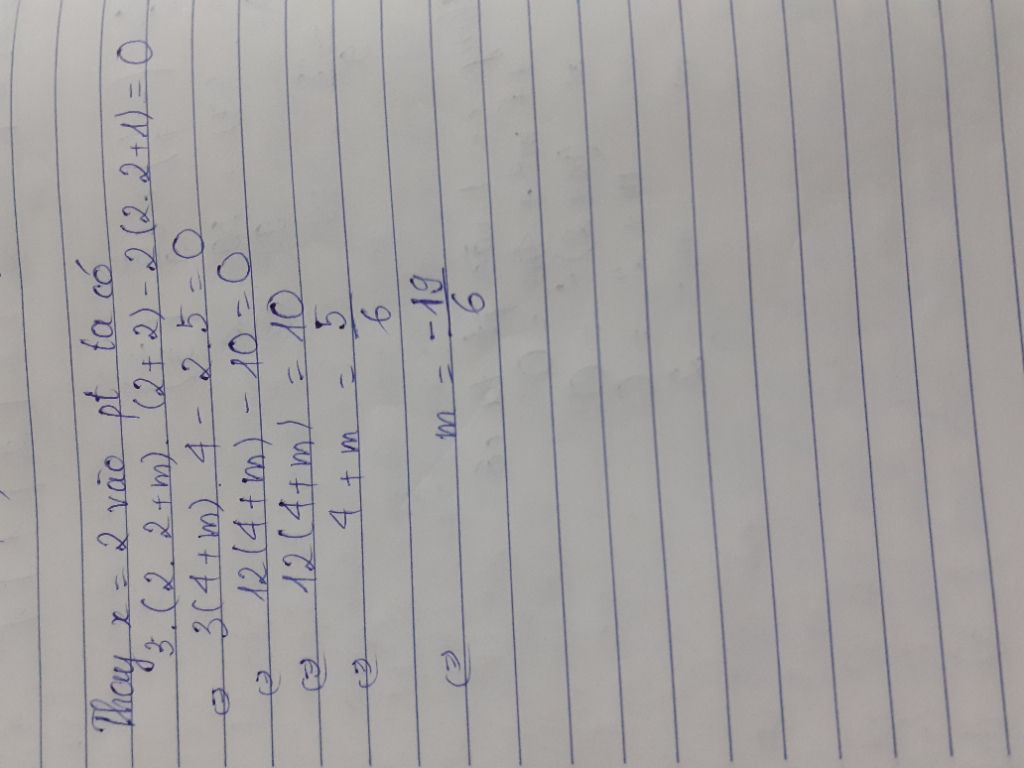 Thay x = 2 vào pt ta có
3.(2.2+m).(2+2)-2(2.2+1)=0
(=) 3(4+m).4-2.5=0
(=) 12(4+m)-10=0
(=) 12(4+m)=10
(=) 4+m=5/6
(=) m=-19/6